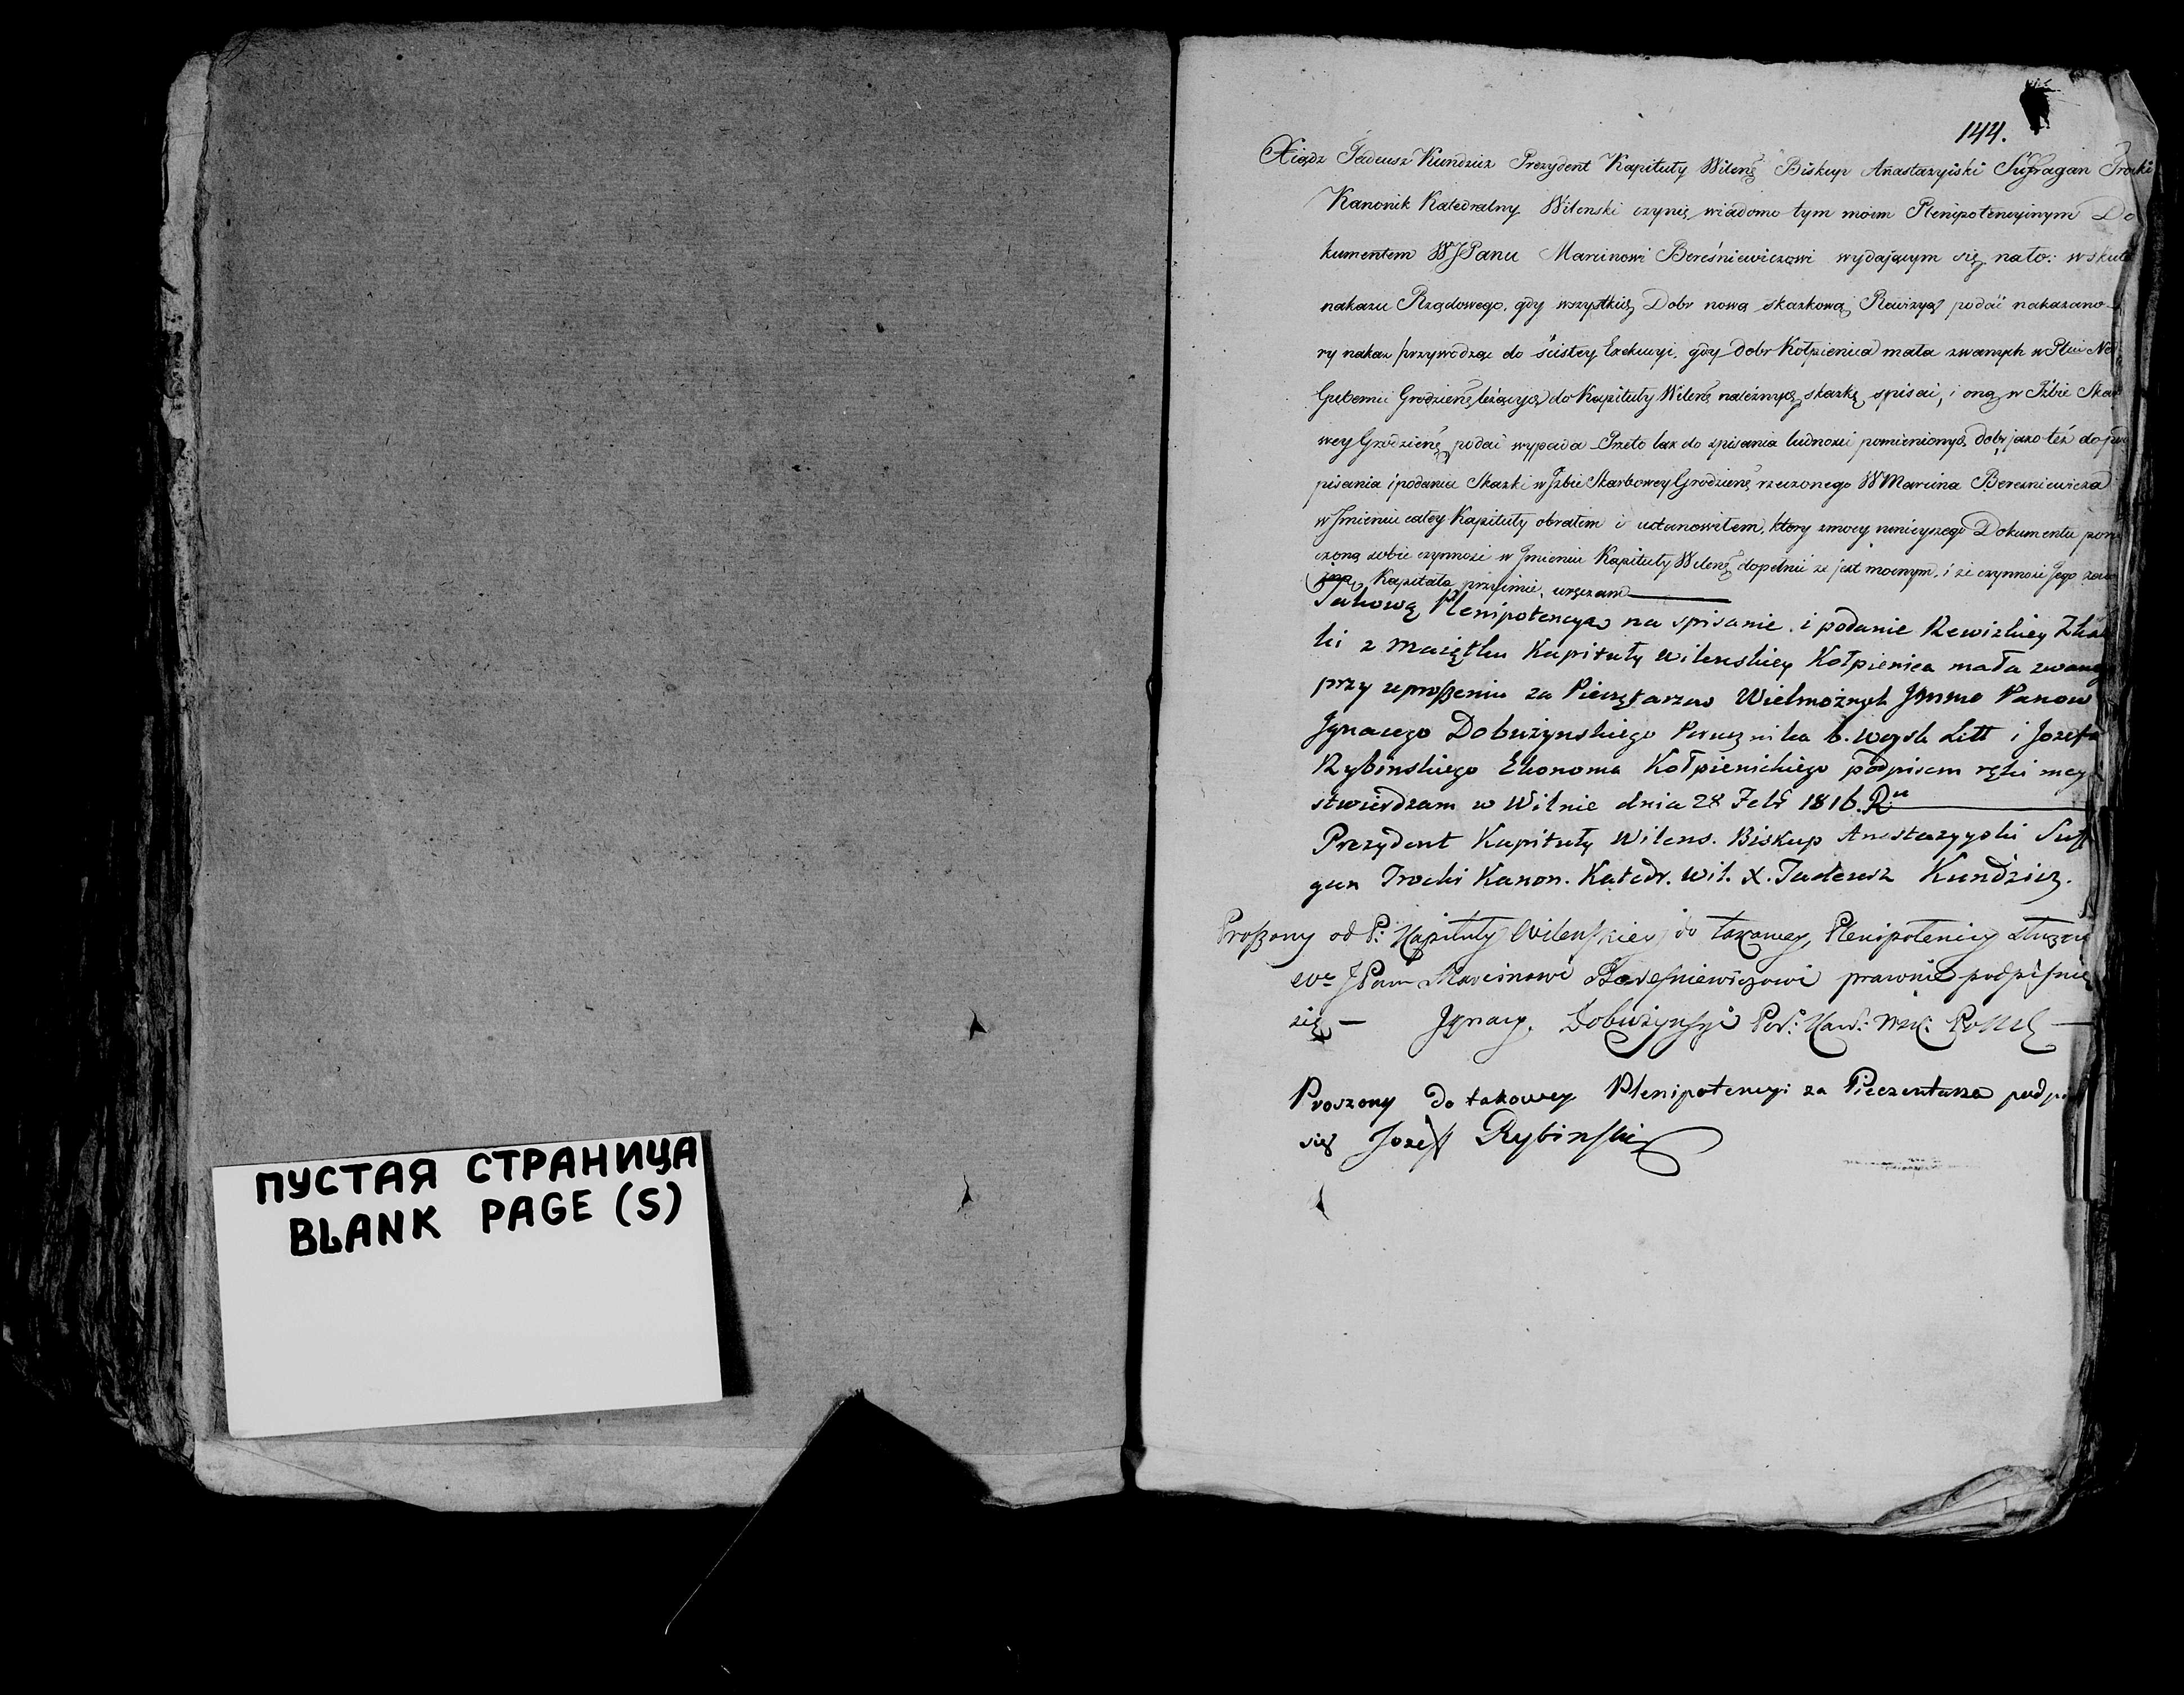 ПУСТАЯ СТРАНИЦА
BLANK PAGE (S)
144.
Xiądz Tadeusz Kundzicz Prezydent Kapituły Wileńs Biskup Anastazyiski Suffragan Trocki
Kanonik Katedralny Wilenski czynię wiadomo tym moim Plenipotencyinym Do
kumentem WJPanu Marcinowi Bereśniewiczowi wydającym się na to: w skut
nakazu Rządowego, gdy wszystkich Dobr nową skazkową Rewizyą podać nakazano
ry nakaz przywodząc do ścisłey Exekucyi, gdy Dobr Kołpienica mała zwanych w Pcie
Gubernii Grodzieńs leżących do Kapituły Wileńs należnych skazkę spisać, i oną w Izbie Skar
wey Grodzieńs podać wypada Przeto tak do spisania ludności pomienionych dobr jako też do
pisania i podania Skazki w Izbie Skarbowey Grodzieńs rzeczonego W Marcina Berezniewicza
w Jmieniu całey Kapituły obrałem i ustanowiłem, ktory z mocy ninieyszego Dokumentu poru
czoną sobie czynność w Jmieniu Kapituły Wileńs dopełnić że jest mocnym, i że czynność Jego
Kapituła przyimie, wręczam
Takową Plenipotencyą na spisanie i podanie Rewizkiey Zkaz
ki z Maiętku Kapituły Wilenskiey Kołpienica mała zwaney
przy uproszeniu za Pieczętarzow Wielmożnych Jmmo Panow
Jgnacego Dobużynskiego Porucznika b. woysk Litt i Jozefa
Rybinskiego Ekonoma Kołpienickiego podpisem ręki mey
stwierdzam w Wilnie dnia 28 Febr 1816. Ru
Prezydent Kapituły Wilens. Biskup Anastazyyski Suff
gan Trocki Kanon. Katedr. Wil. X. Tadeusz Kundzicz.
Proszony od P: Kapituły Wilenskiey do takowey Plenipotenciy
JPanu Marcinowi Beresniewiczowi prawnie podpisuię
się — Jgnacy Dobużynski
Proszony Do takowey Plenipotencyi za Pieczentarza podpi
się Jozeff Rybinski